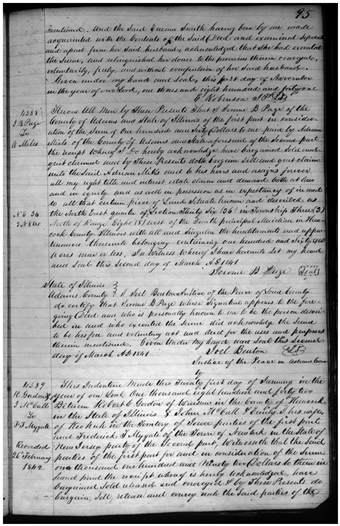 95
mentioned. And the said Emma Smith having been by me made
acquainted with the contents of the said Deed and examined separate
and apart from her said husband, acknowledged that she had executed
the same, and relinquished her dower to the premises therein conveyed,
voluntarily, freely, and without compulsion of her said husband.
Given under my hand and seal, this first day of November
in the year of our Lord, one thousand eight hundred and forty one
Robinson
4888
J B Page
To
A Mills
Know All Men by These Presents That I Jerome B Page of the
County of Adams and State of Illinois of the first part in consider-
ation of the Sum of One hundred and sixty Dollars to me paid by Adrian
Mills of the County of Adams and State aforesaid of the second part
the receipt whereof I do hereby acknowledge have Bargained Sold and
quit claimed and by These Presents doth bargain Sell and quit claim
unto the said Adrian Mills and to his heirs and assigns forever
all my right title and interest estate claim and demand both at law
and in equity and as well in possession as in expectancy of in and
to all that certain piece of Land situate known and described as
the North East quarter of Section Thirty Six (36) in Township Three (3)
North of Range Eight (8) West of the fourth principal Meridian in Han-
cock County, Illinois with all and singular the hereditaments and appur-
tenances thereunto belonging containing one hundred and sixty
acres more or less. In witness whereof I have hereunto set my hand
and Seal this second day of March AD 1841
Jerome B Page Seal
State of Illinois
Adams County I Joel Benton Justice of the Peace in said County
do certify that Jerome B Page whose signature appears to the fore-
going Deed and who is personally known to me to be the person descri-
bed in and who executed the same did acknowledge the same
to be his free and voluntary act and deed for the uses and purposes
therein mentioned. Given under my hand and seal this second
day of March AD 1841
Joel Benton
Justice of the Peace in Adams County
4889
R Gordon &
J McCall
To
F S Mygatt
Recorded
26 February
1842
This Indenture Made this Twenty first day of January in the
year of our Lord One thousand eight hundred and forty two
Between Robert Gordon of in the County of Hancock
in the State of Illinois & John McCall & his wife
of Keokuk in the Territory of Iowa parties of the first part
and Frederick S Mygatt of the Town of Newark in the State of
New Jersey of the second part, Witnesseth that the said
parties of the first part for and in consideration of the sum
of One thousand one hundred and Ninety two Dollars to them in
hand paid the receipt whereof is hereby acknowledged have
bargained Sold released and conveyed & by These Presents do
bargain Sell release and convey unto the said parties of the